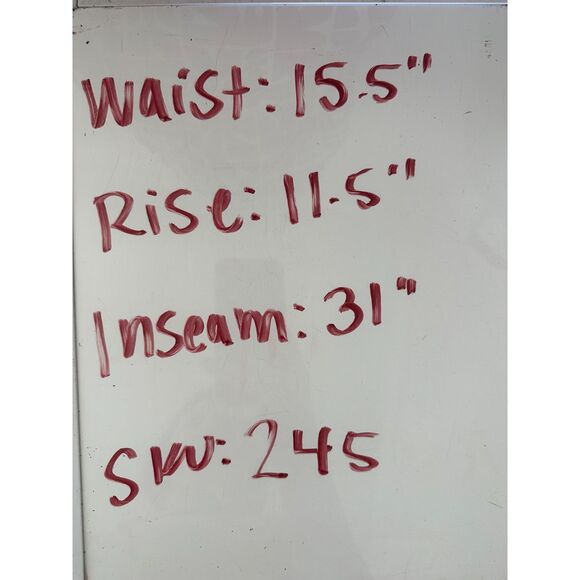 Waist: 15.5"
Rise: 11.5"
Inseam: 31"
SKU: 245